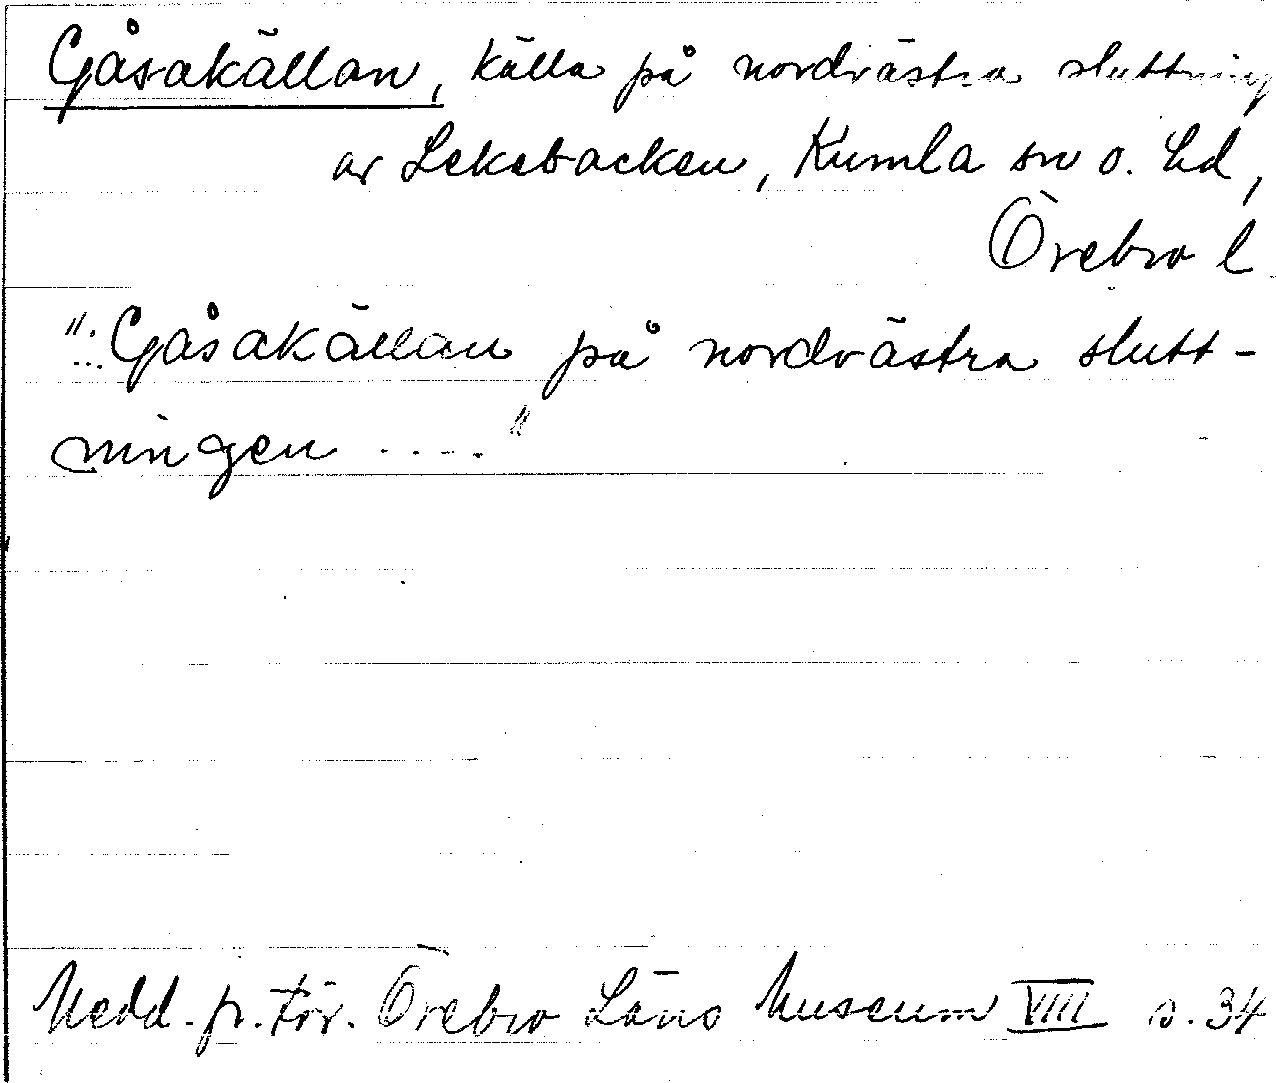 Gåsakällan, källa på nordvästra sluttning
av Lekebacken, Kumla sn o. hd,
Örebro l
"... Gåsakällan på nordvästra slutt-
ningen ...."
Medd. fr. för. Örebro Läns Museum VIII s. 34